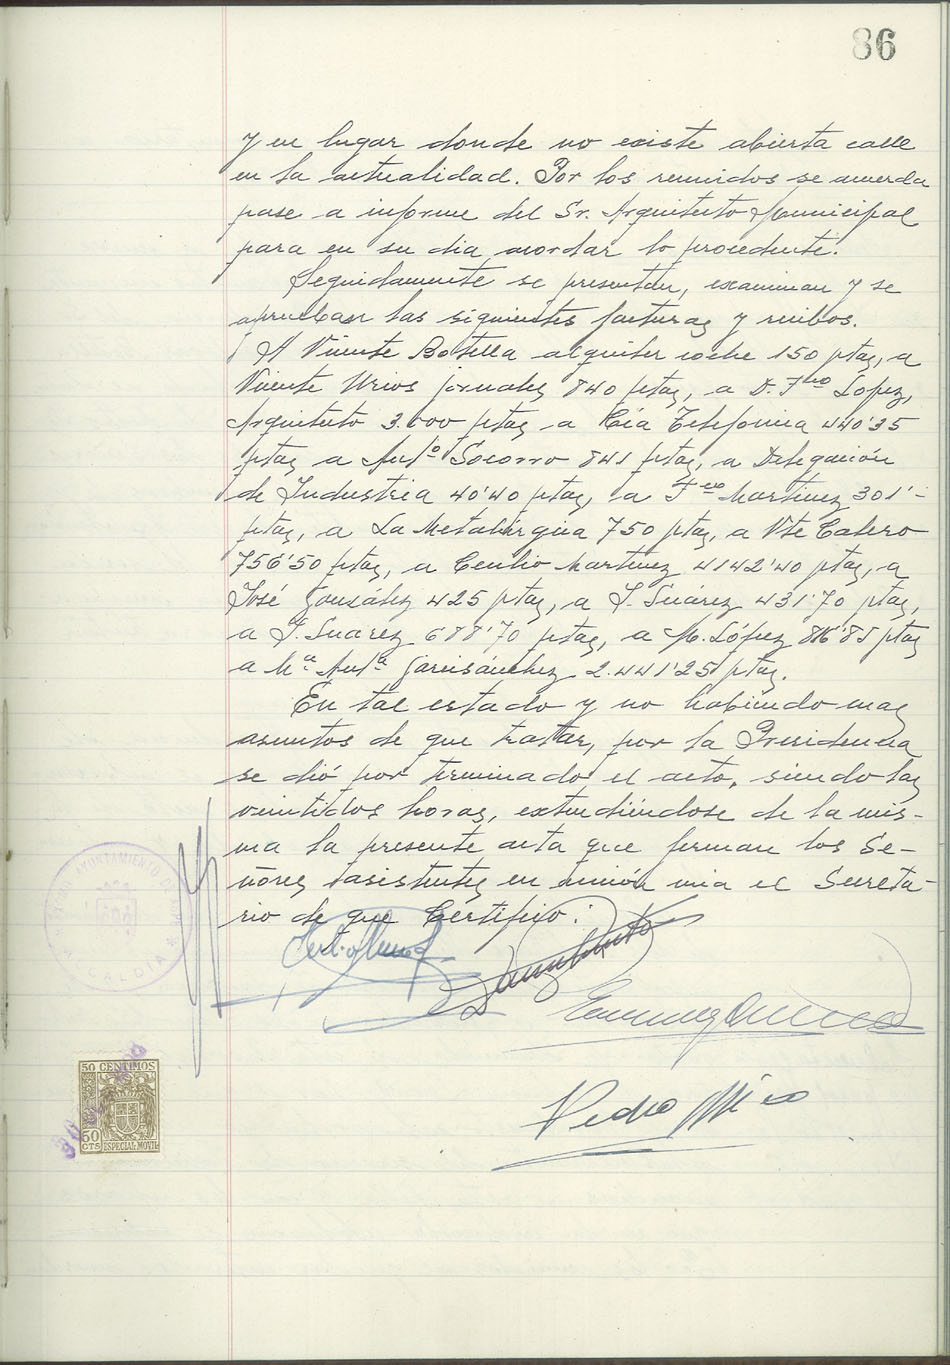 86
y en lugar donde no existe abierta calle
en la actualidad. Por los reunidos se acuerda
pase a informe del Sr. Arquitecto Municipal
para en su dia acordar lo procedente.
Seguidamente se presentan, examinan y se
aprueban las siguientes facturas y recibos.
A Vicente Botella alquiler coche 150 ptas, a
Vicente Urios jornales 840 ptas, a D. Fco Lopez,
Arquitecto 3.000 ptas, a Cía Telefonica 440'35
ptas, a Antº Socorro 841 ptas, a Delegación
de Industria 40'40 ptas, a Fco Martinez 301'-
ptas, a La Metalúrgica 750 ptas, a Vte Calero
756'50 ptas, a Martinez 4142'40 ptas, a
José González 425 ptas, a J. Suárez 431'70 ptas,
a J. Suarez 688'70 ptas, a M. López 816'85 ptas
a Mª Antª Garcisánchez 2.441'25 ptas.
En tal estado y no habiendo mas
asuntos de que tratar, por la Presidencia
se dió por terminado el acto, siendo las
veintidos horas, extendiéndose de la mis-
ma la presente acta que firman los Se-
ñores asistentes en unión mia el Secreta-
rio de que Certifico:
AYUNTAMIENTO DE
ALCALDIA
Pedro Mico
50 CENTIMOS
50
CTS ESPECIAL MOVIL